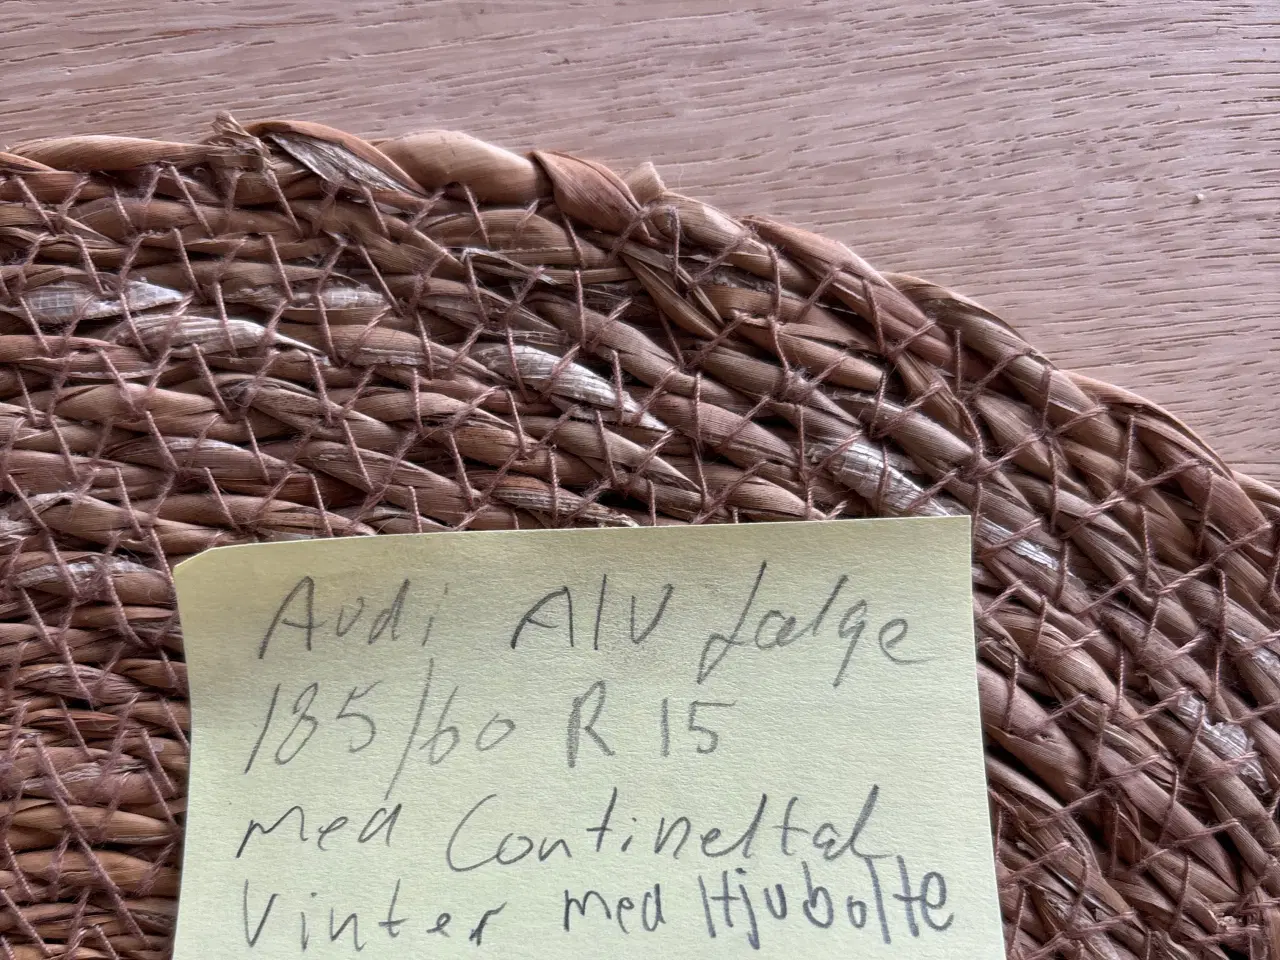 Audi AlV fælge
185/60 R 15
med Contineltal
Vinter med Hjubolte